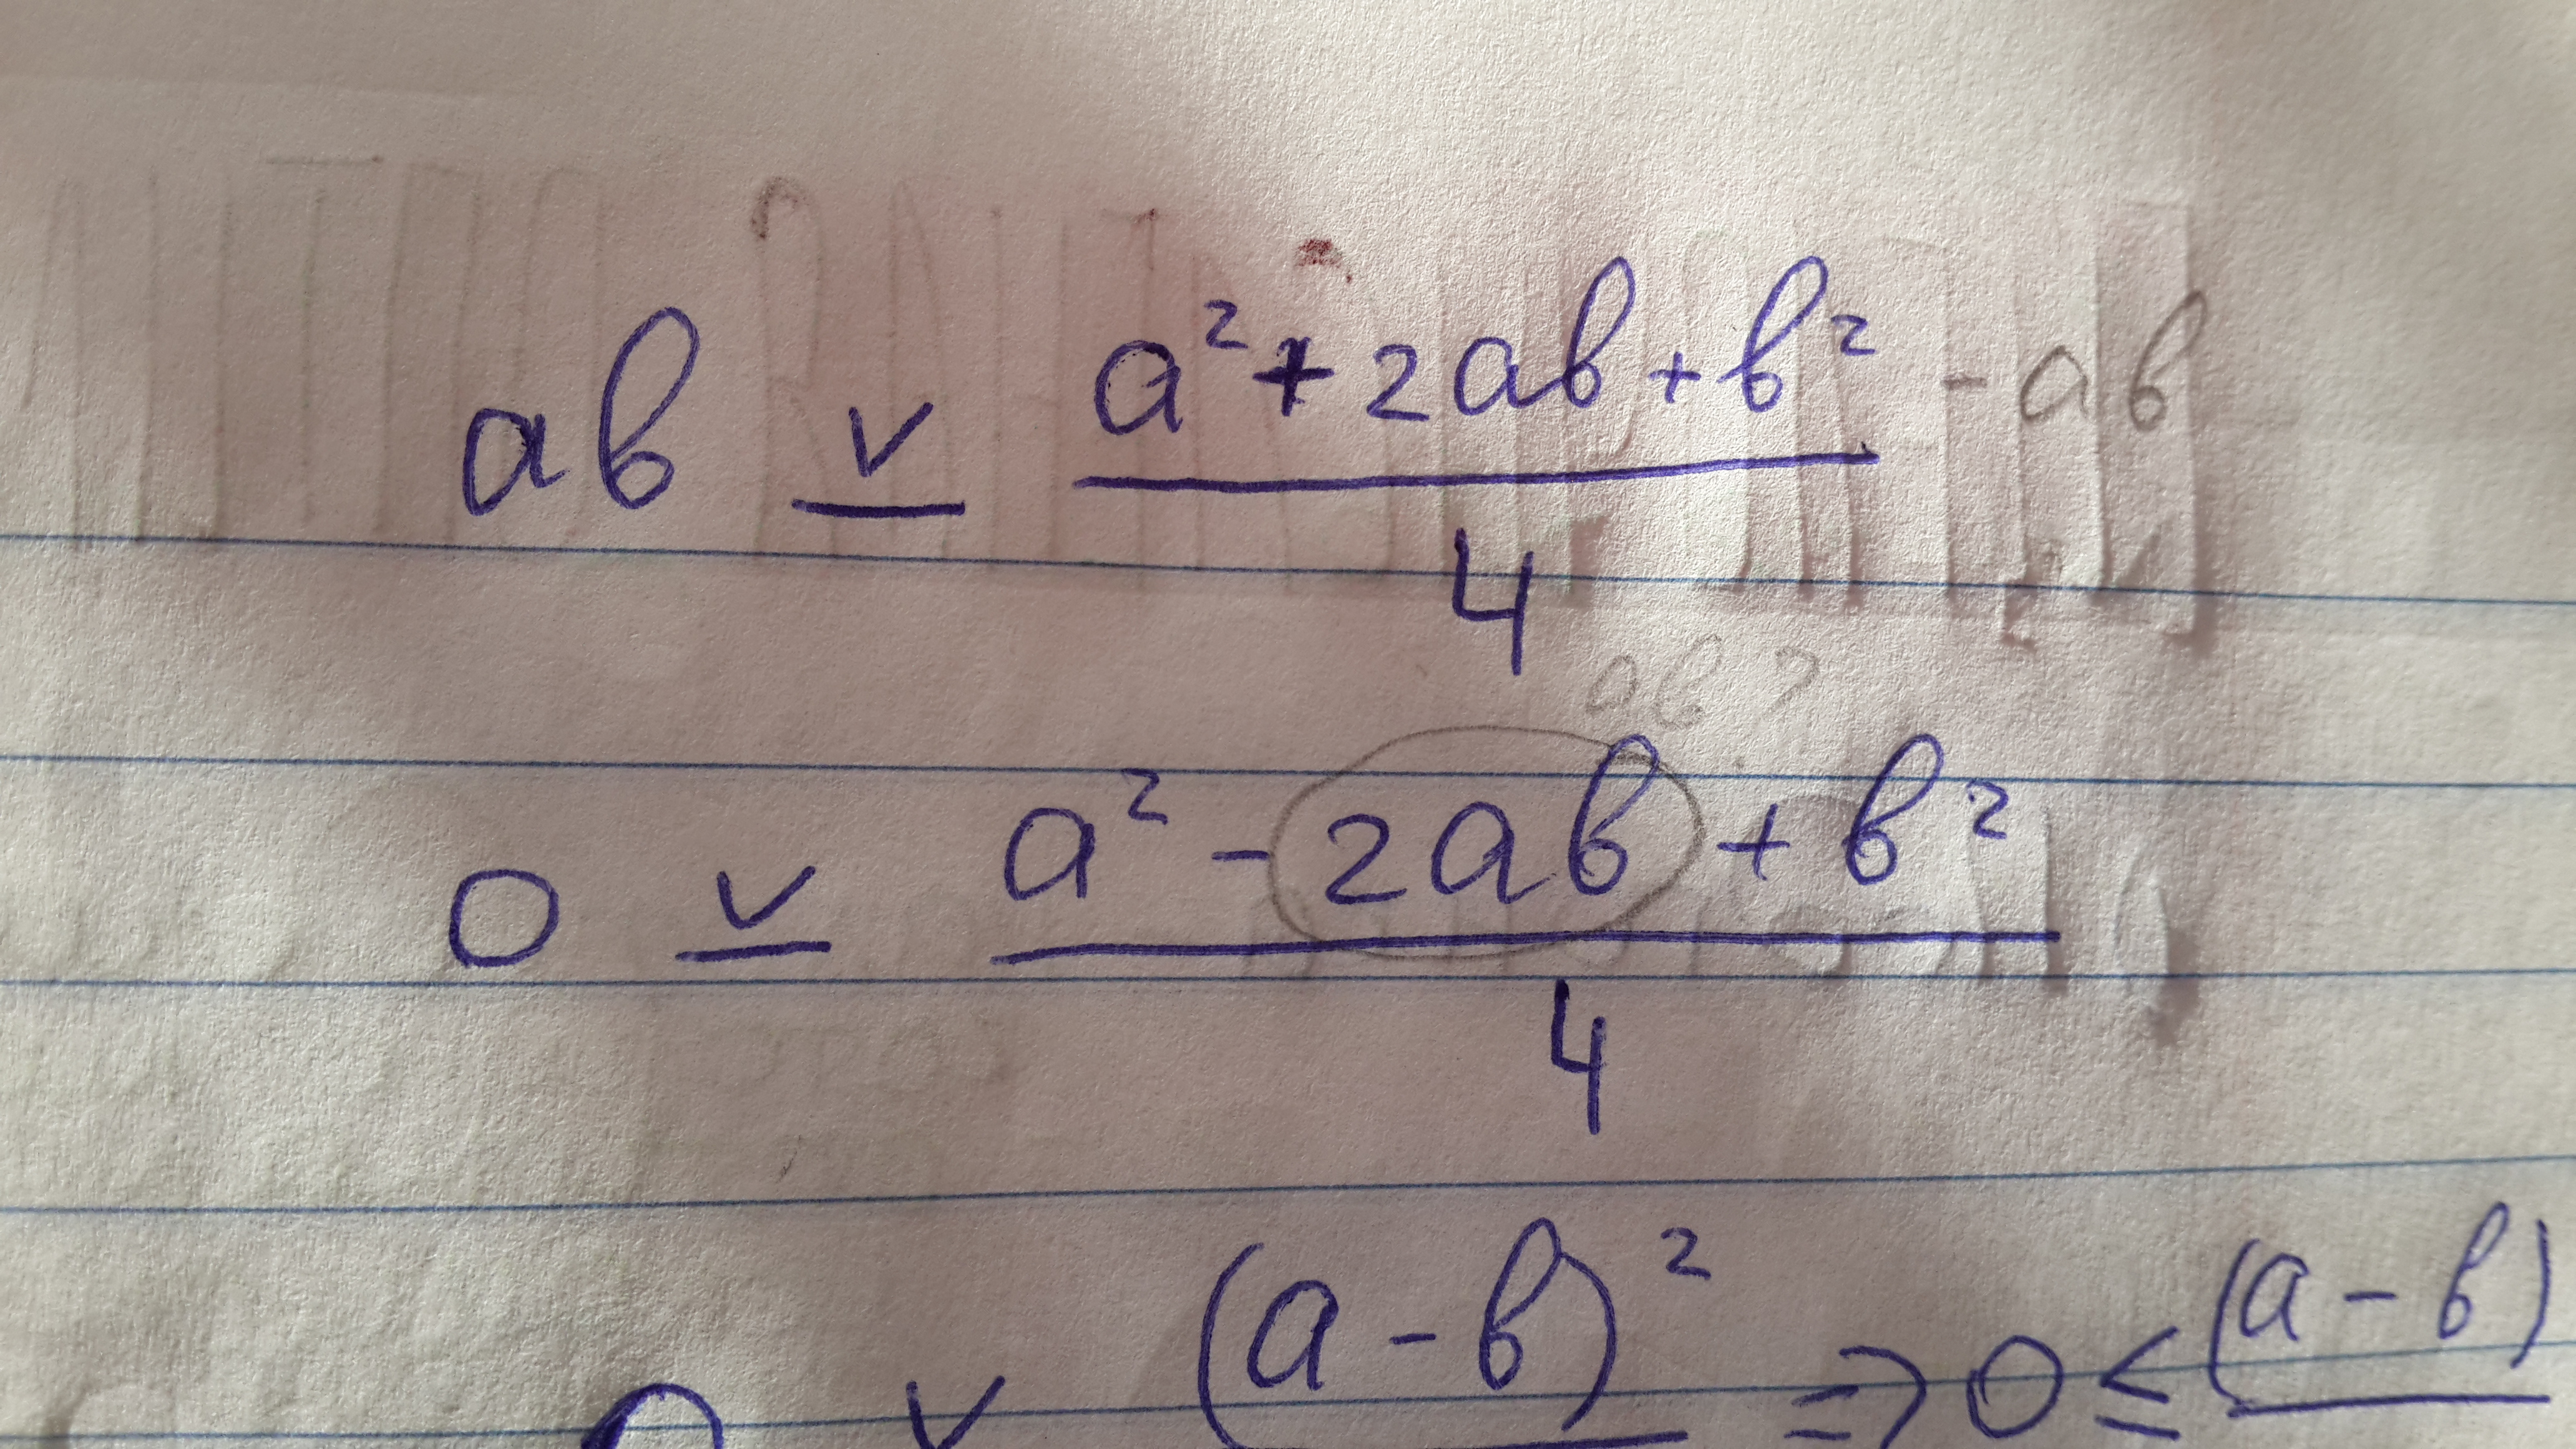 ab ⊻ a² + 2ab + b² - ab
4
ab?
0 ⊻ a² - 2ab + b²
4
0 ∨ (a - b)² ⇒ 0 ≤ (a - b)